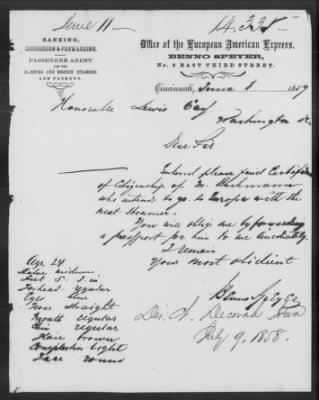 June 11
14,228
BANKING,
COMMISSION & FORWARDING.
PASSENGER AGENT
FOR THE
HAMBURG AND BREMEN STEAMERS
AND PACKETS
Office of the European American Express.
BENNO SPEYER,
No. 8 EAST THIRD STREET.
Cincinnati, June 8 1859
Honorable Lewis Cass
Washington
Dear Sir
Enclosed please find Certificate
of Citizenship of
who intends to go to Europe with the
next Steamer.
You will oblige me by forwarding
a passport for him to me
I remain
Your most obedient
Benno Speyer
Age 24
Stature medium
feet 5. 3 in
Forehead regular
Eyes
Nose straight
Mouth regular
Chin regular
Hair brown
Complexion light
Face round
Decorah Iowa
July 9, 1858.